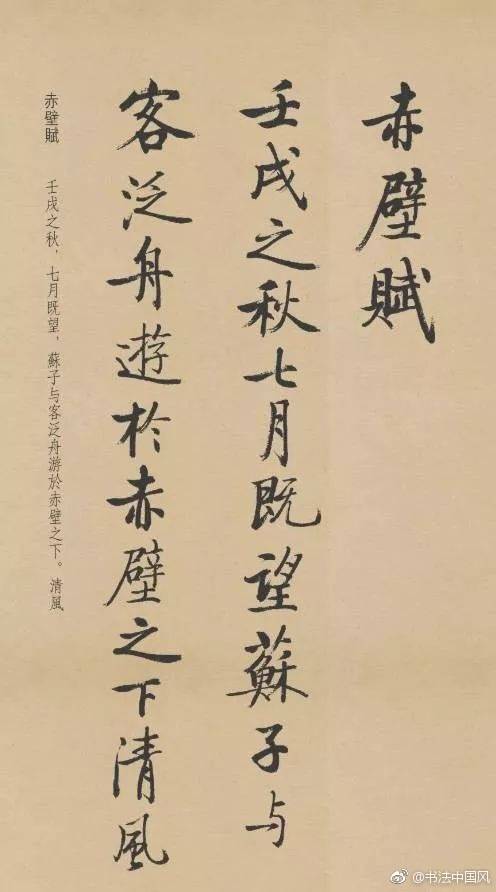 赤壁賦
壬戌之秋七月既望蘇子与
客泛舟遊於赤壁之下清風
赤壁賦　壬戌之秋，七月既望，蘇子与客泛舟游於赤壁之下。清風
@书法中国风